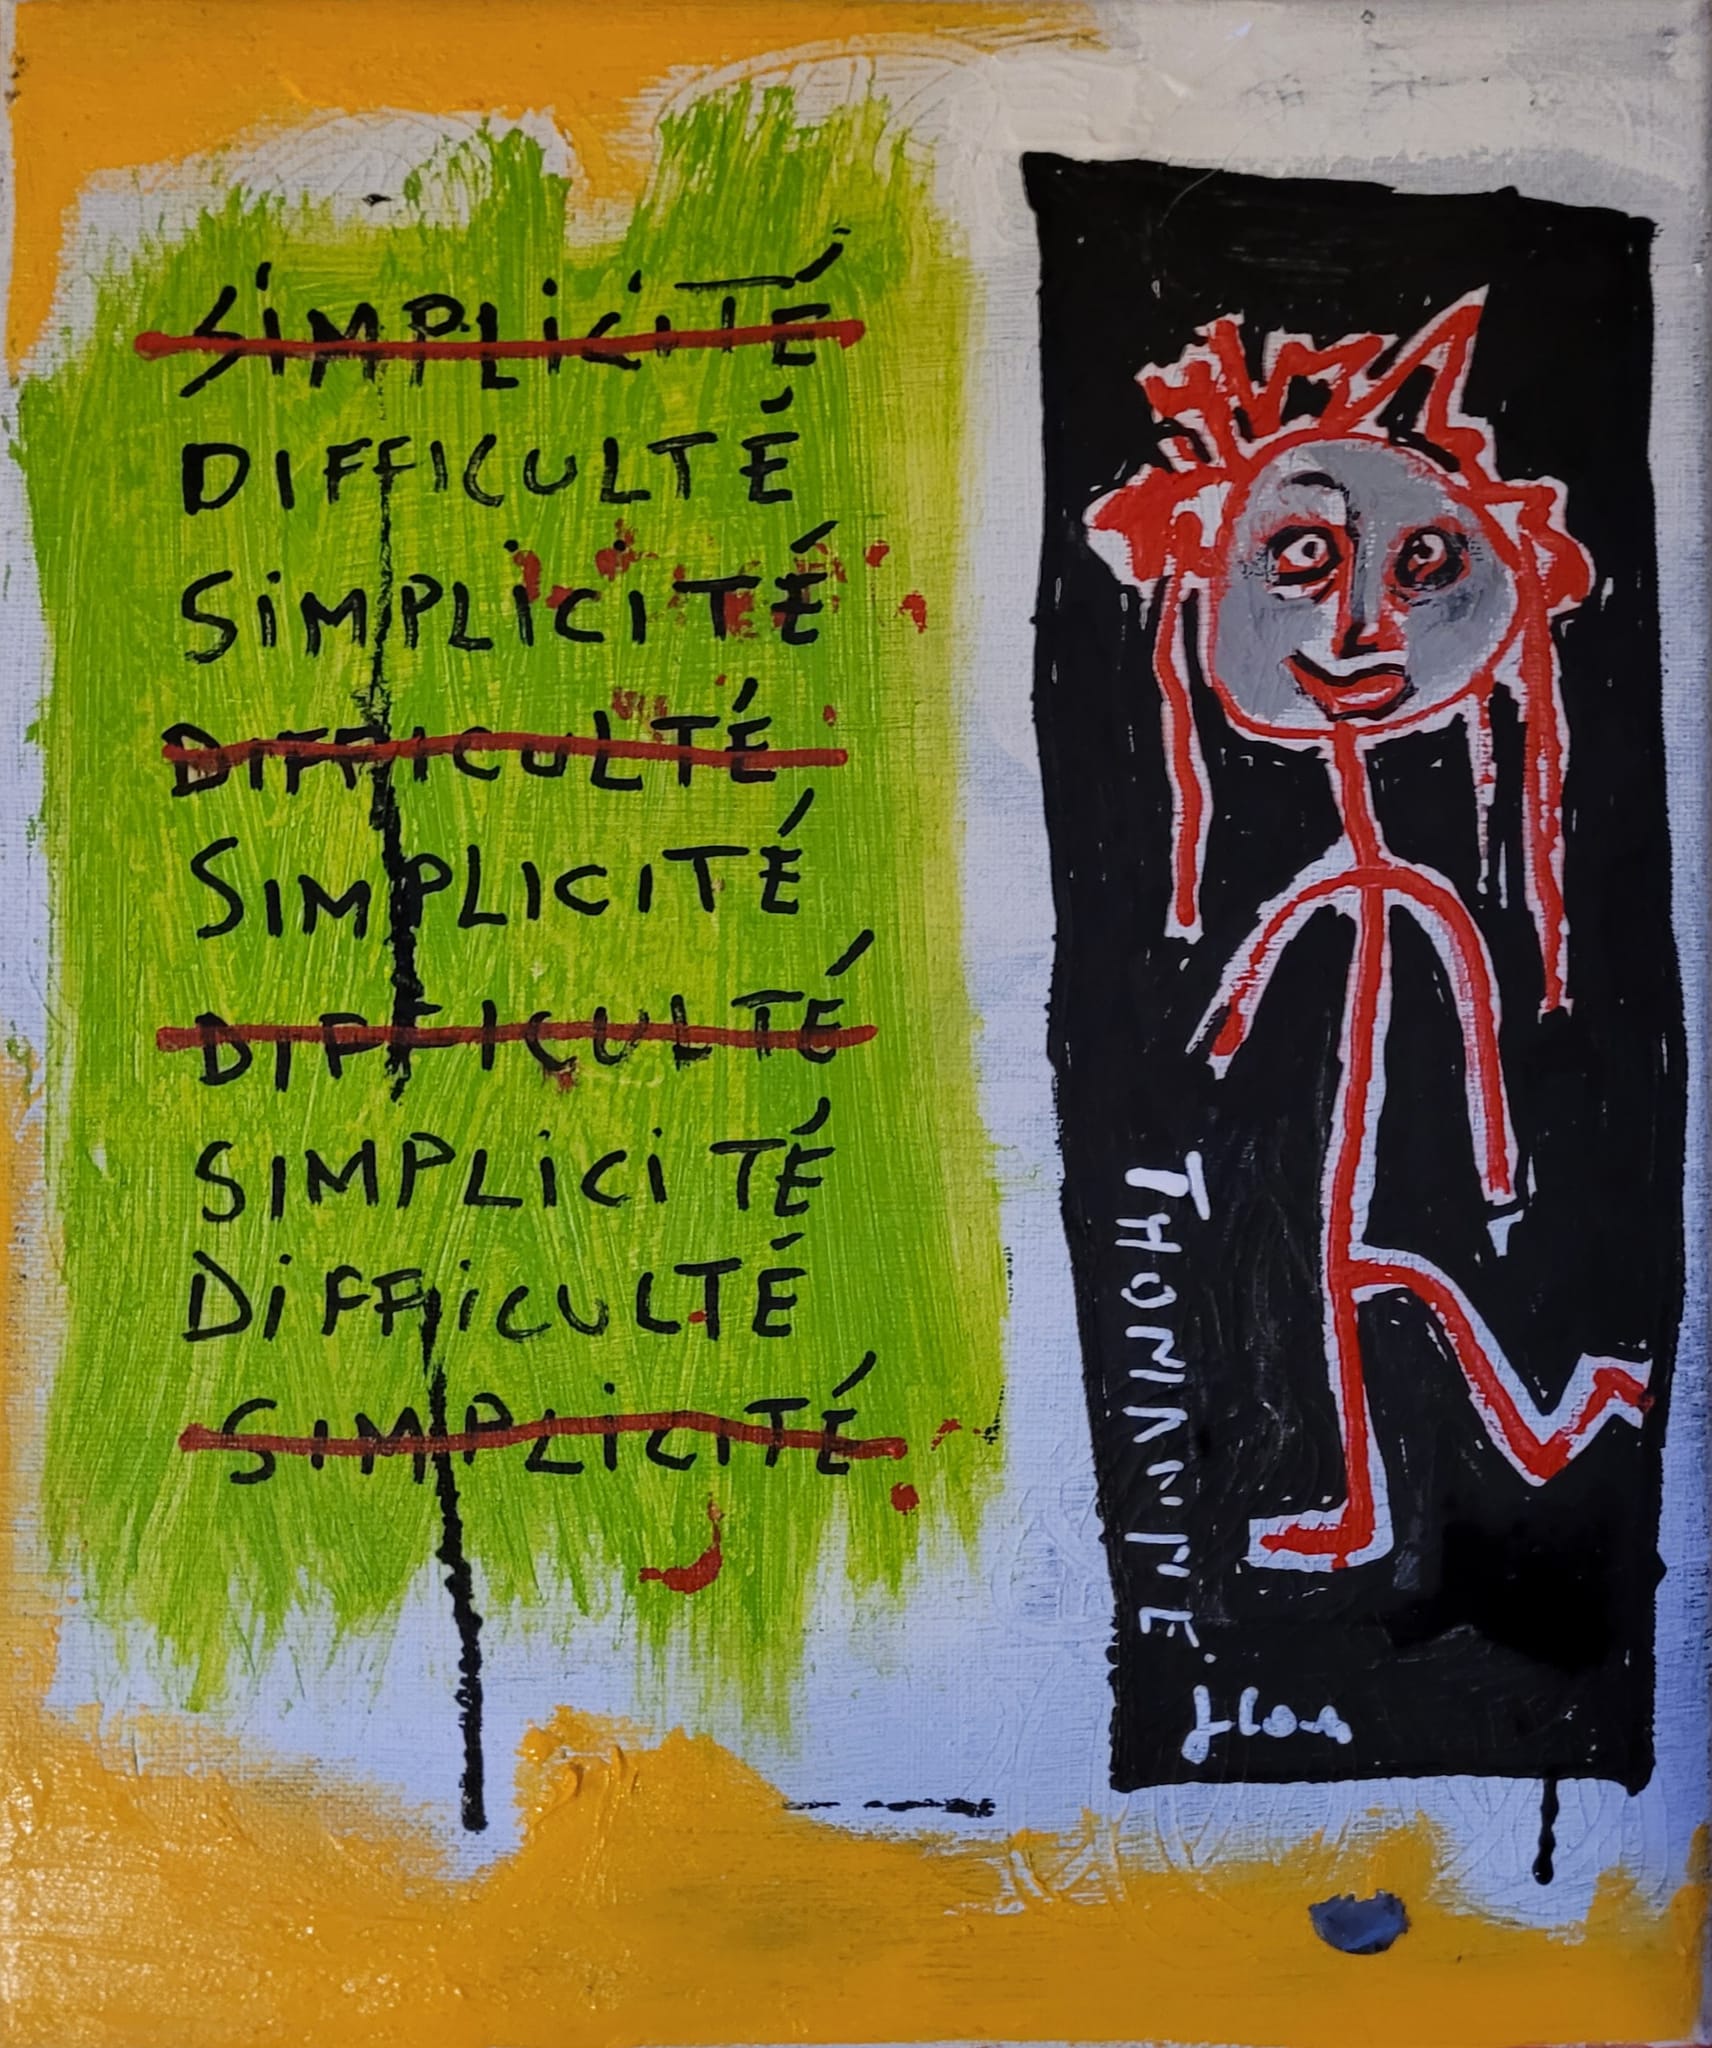 SiMPLiCiTÉ
DIFFICULTÉ
SiMPLiCiTÉ
DIFFICULTÉ
SIMPLICITÉ
DiFFICULTÉ
SIMPLiCiTÉ
DiFFiCULTÉ
SIMPLiCiTÉ